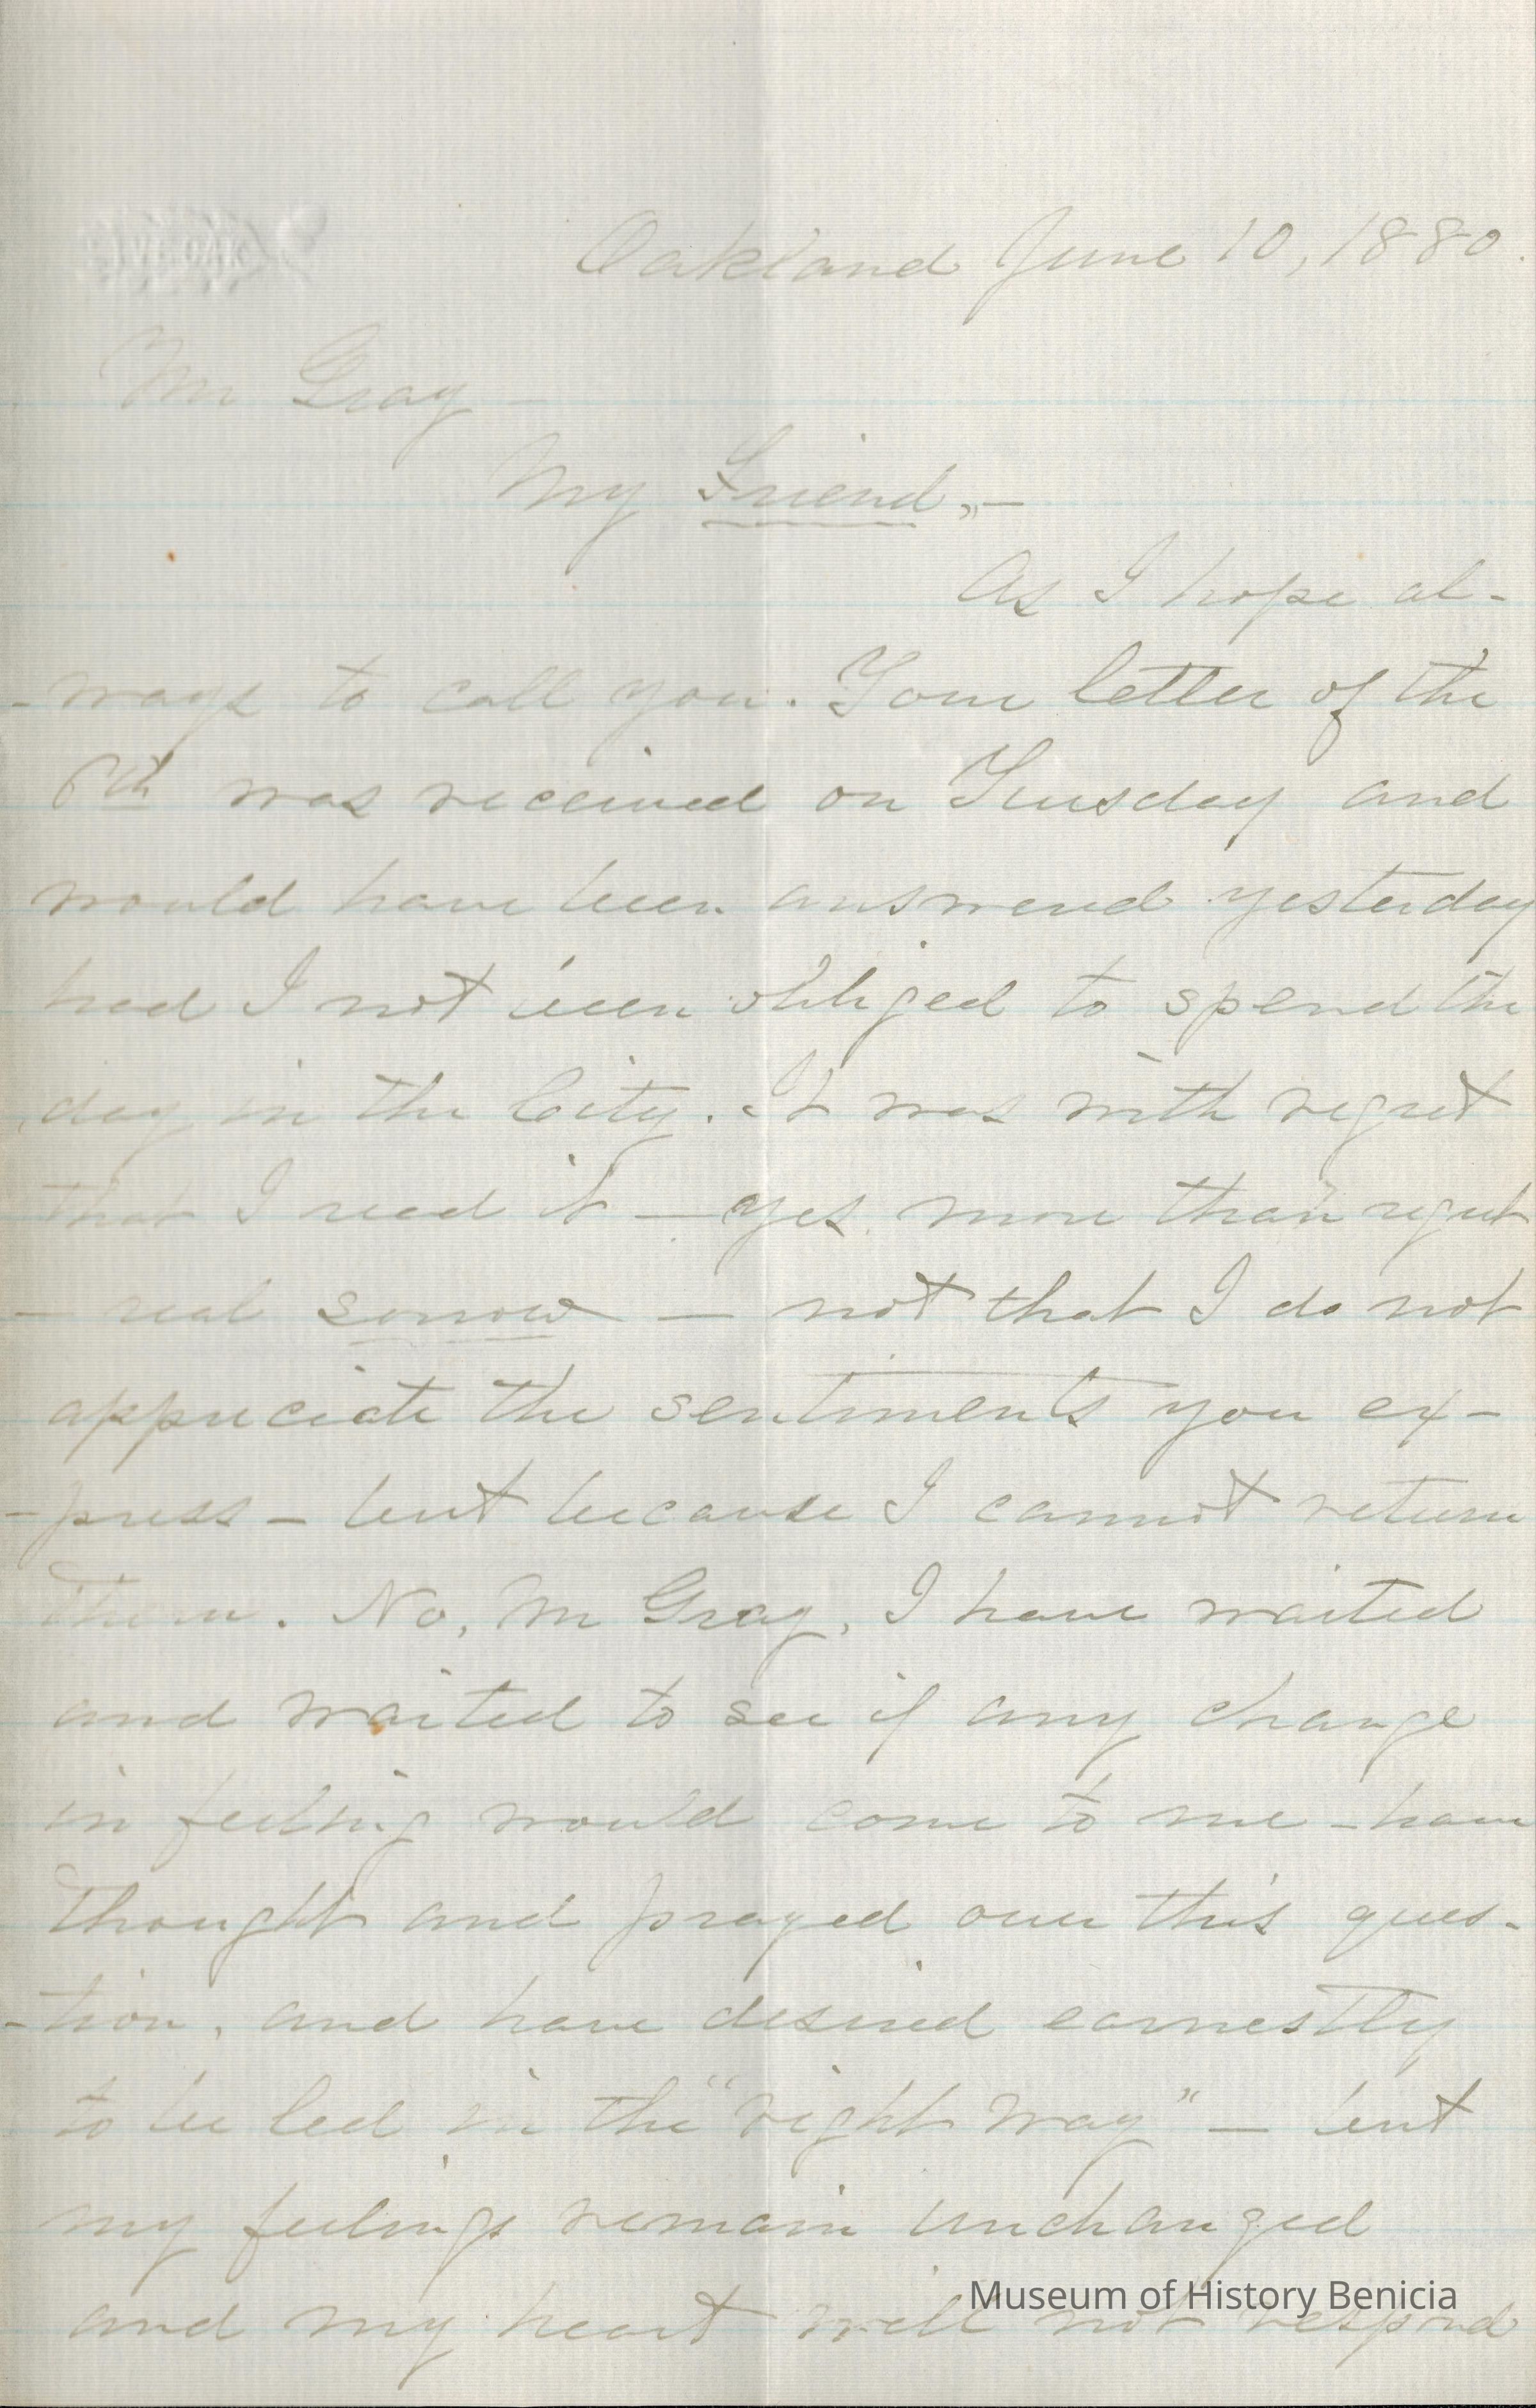 Oakland June 10, 1880.
Mr Gray —
My Friend,—
As I hope al-
-ways to call you. Your letter of the
6th was received on Tuesday and
would have been answered yesterday
had I not been obliged to spend the
day in the City. It was with regret
that I read it — yes, more than regret
— real sorrow — not that I do not
appreciate the sentiments you ex-
-press — but because I cannot return
them. No, Mr Gray, I have waited
and waited to see if any change
in feeling would come to me — have
thought and prayed over this ques-
-tion, and have desired earnestly
to be led in the "right way" — but
my feelings remain unchanged
Museum of History Benicia
and my heart will not respond